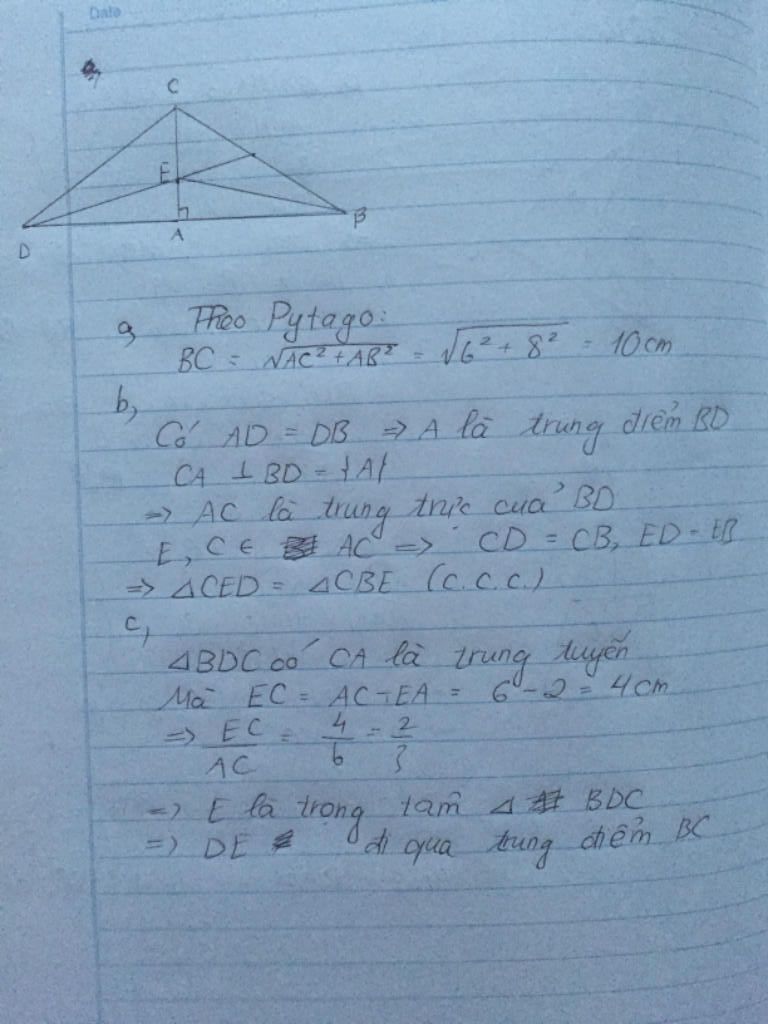 Date
a,
C
E
D
A
B
a, Theo Pytago:
BC = √AC² + AB² = √6² + 8² = 10cm
b,
Có AD = DB => A là trung điểm BD
CA ⊥ BD = {A}
=> AC là trung trực của BD
E, C ∈ AC => CD = CB, ED = EB
=> △CED = △CBE (c.c.c.)
c,
△BDC có CA là trung tuyến
Mà EC = AC - EA = 6 - 2 = 4cm
=> EC/AC = 4/6 = 2/3
=> E là trọng tâm △ BDC
=> DE đi qua trung điểm BC